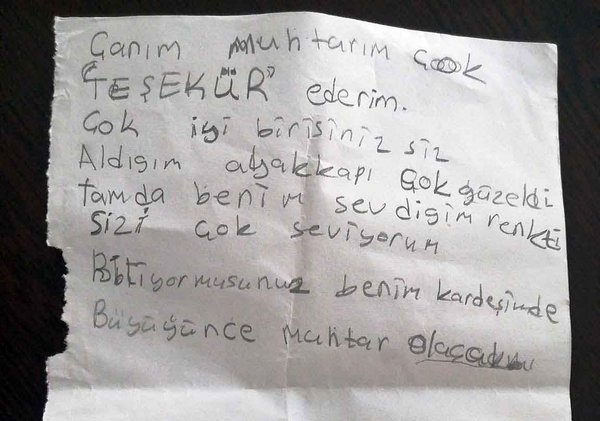 Canım muhtarım çoook
"TEŞEKÜR" ederim.
Çok iyi birisiniz siz
Aldıgım ayakkapı çok güzeldi
tamda benim sevdigim renkti
Sizi çok seviyorum
Biliyormusunuz benim kardeşimde
Büyüğünce muhtar olacak